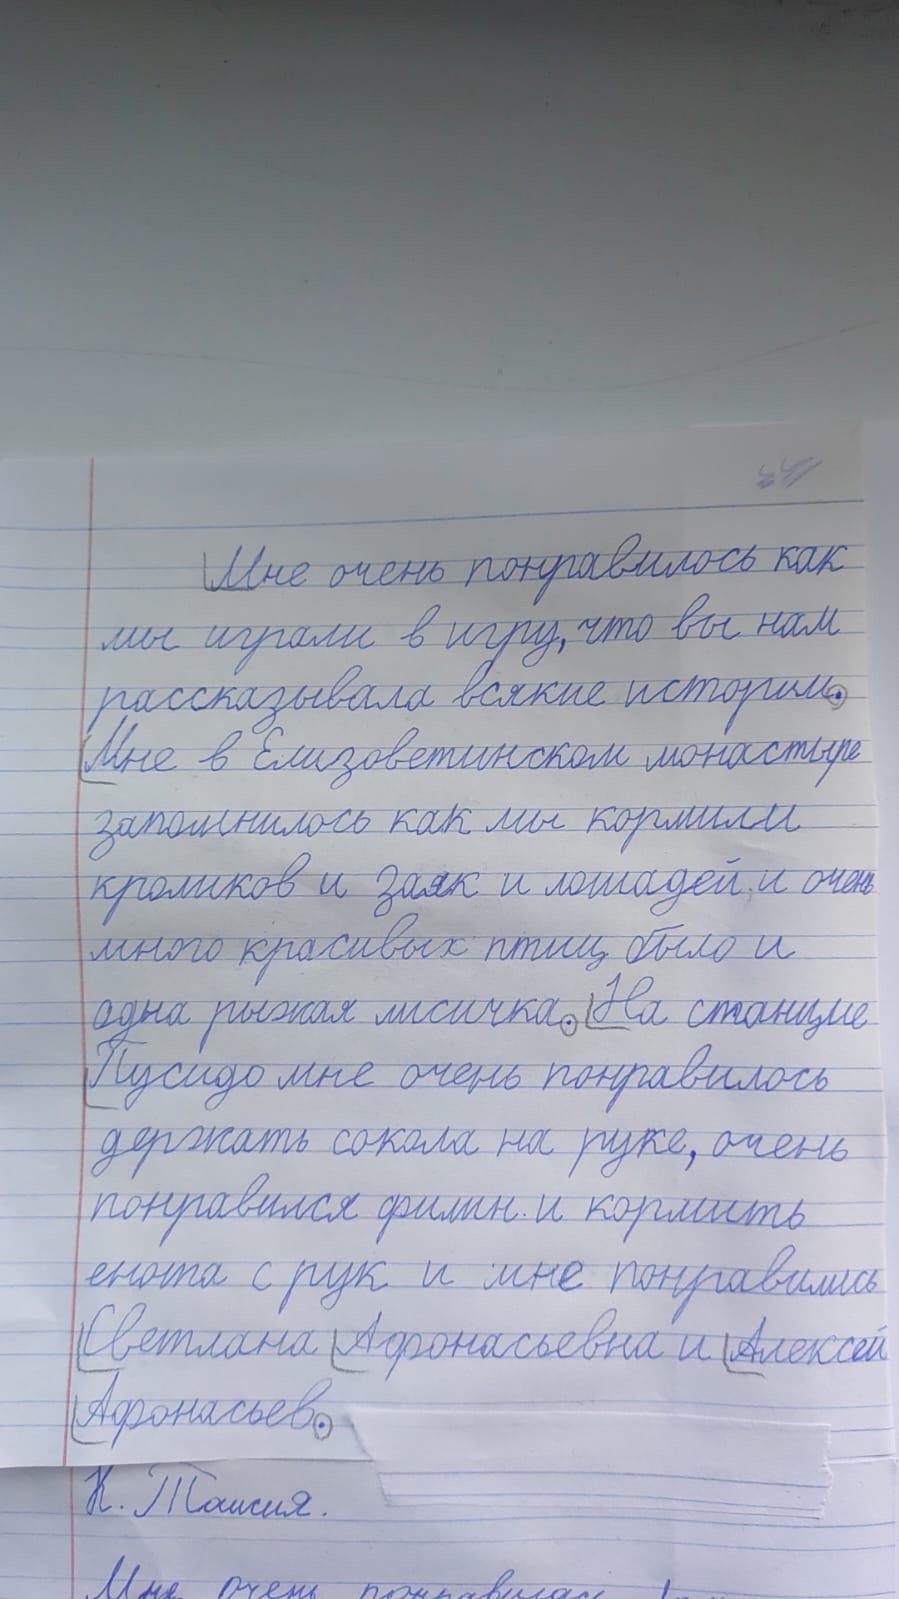 Мне очень понравилось как
мы играли в игру, что вы нам
рассказывала всякие истории.
Мне в Елизоветинском монастыре
запомнилось как мы кормили
кроликов и заяк и лошадей и очень
много красивых птиц было и
одна рыжая лисичка. На станцие
Пусидо мне очень понравилось
держать сокола на руке, очень
понравился филин и кормить
енота с рук и мне понравились
Светлана Афонасьевна и Алексей
Афонасьев.
К. Таисия.
Мне очень